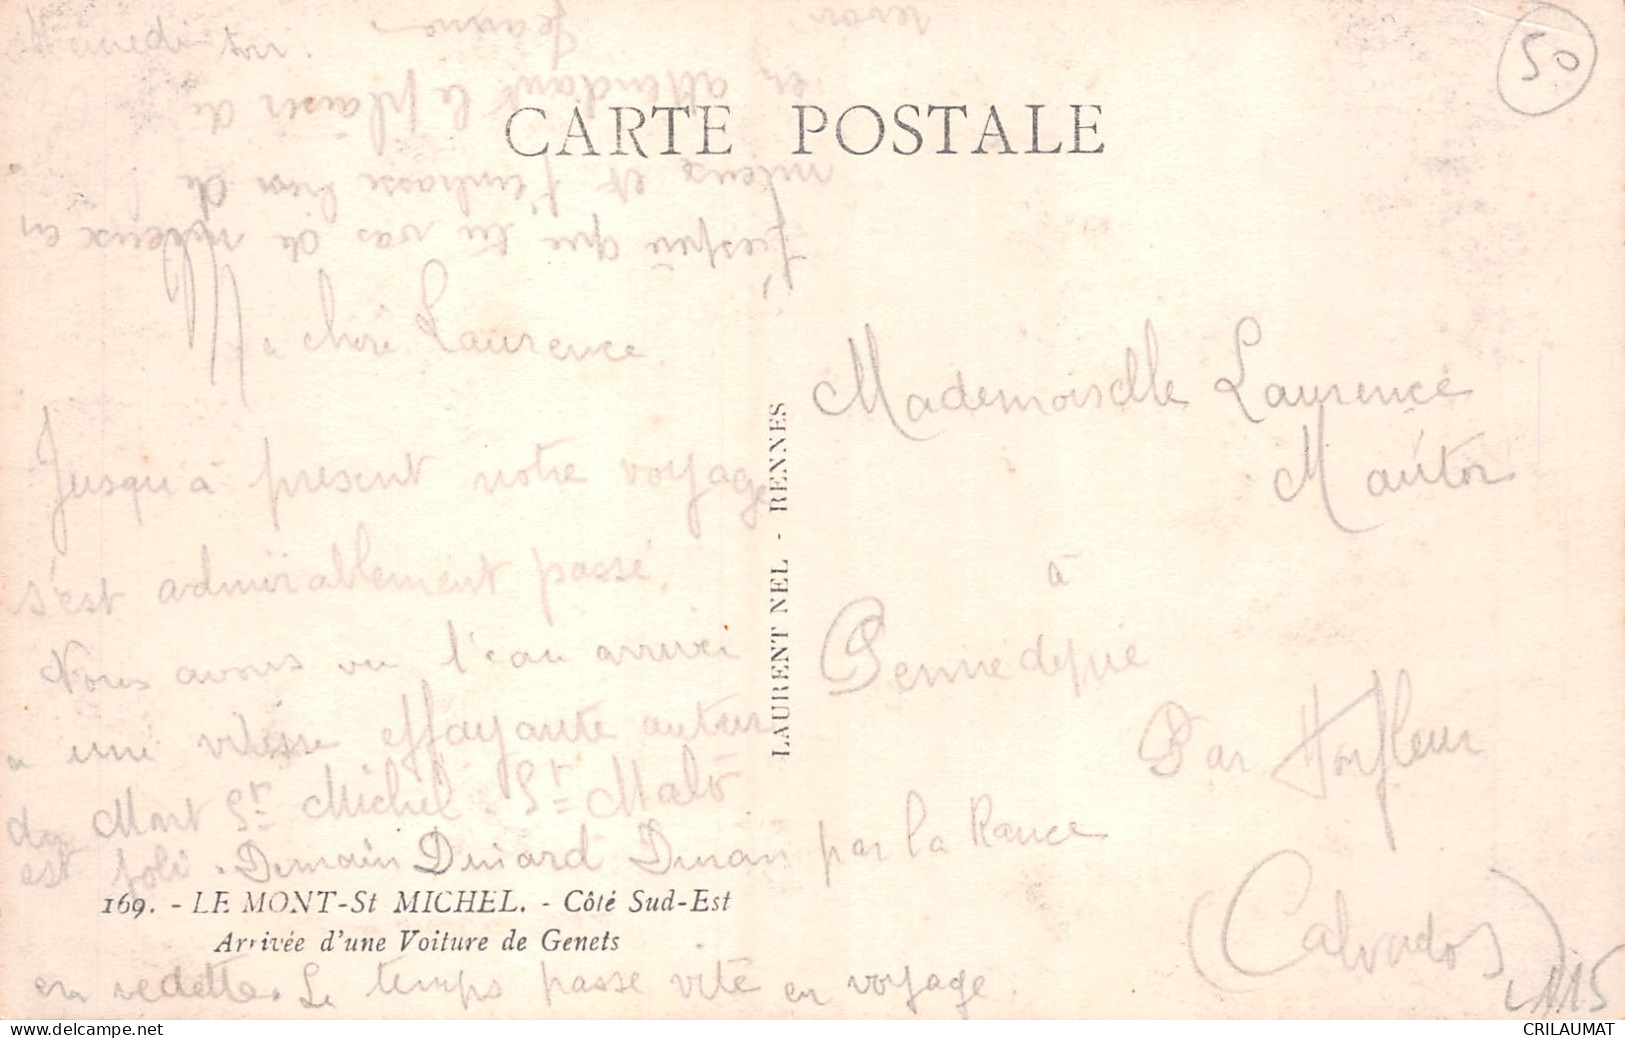 Mercredi soir.
50
CARTE POSTALE
Ma chère Laurence
Jusqu'à présent notre voyage
s'est admirablement passé.
Nous avons vu l'eau arriver
a une vitesse effayante autour
du Mont St Michel. St Malo
est joli. Demain Dinard Dinan par la Rance
en vedette. Le temps passe vite en voyage.
J'espère que tu vas de mieux en
mieux et t'embrasse bien de
en attendant le plaisir de
revoir
Jeanne
LAURENT NEL - RENNES
Mademoiselle Laurence
Mautor
à
Pennedepie
Par Honfleur
(Calvados)
169. - LE MONT-St MICHEL. - Côté Sud-Est
Arrivée d'une Voiture de Genets
L115
CRILAUMAT
www.delcampe.net